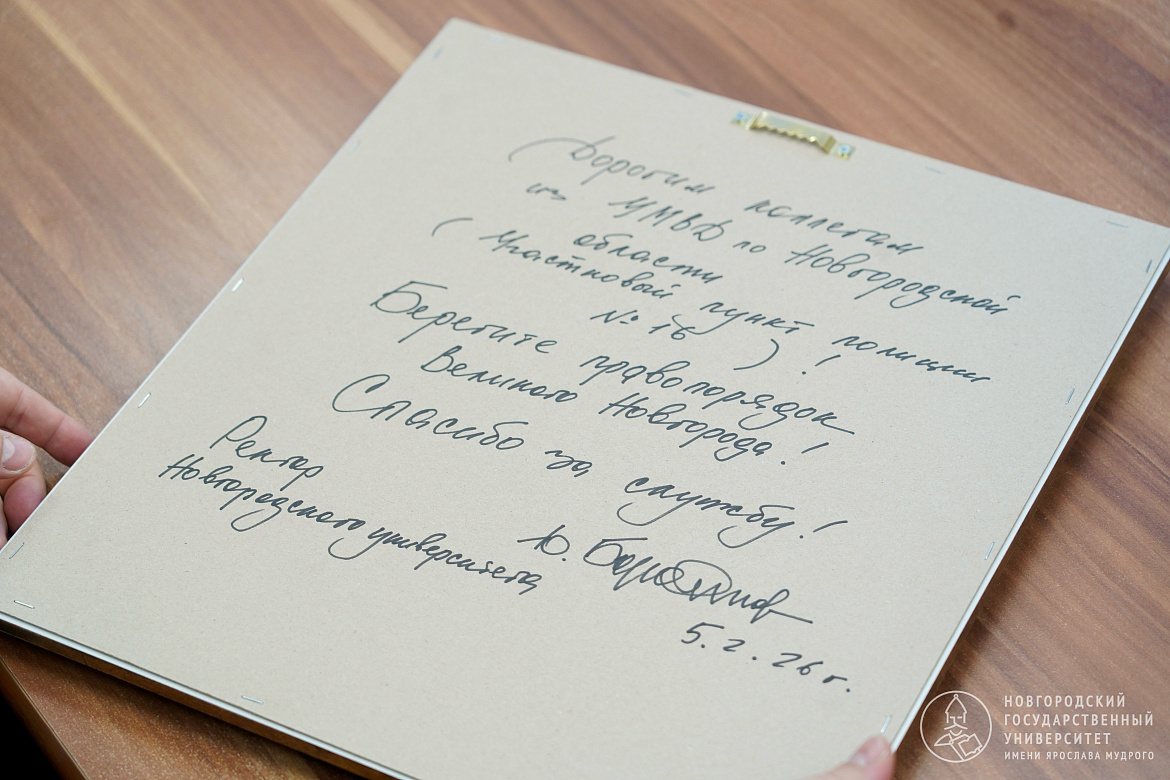 Дорогим коллегам
из УМВД по Новгородской
области
(Участковый пункт полиции
№ 16)!
Берегите правопорядок
Великого Новгорода!
Спасибо за службу!
Ректор
Новгородского университета
Ю. Боровиков
5.2.26 г.
НОВГОРОДСКИЙ
ГОСУДАРСТВЕННЫЙ
УНИВЕРСИТЕТ
ИМЕНИ ЯРОСЛАВА МУДРОГО